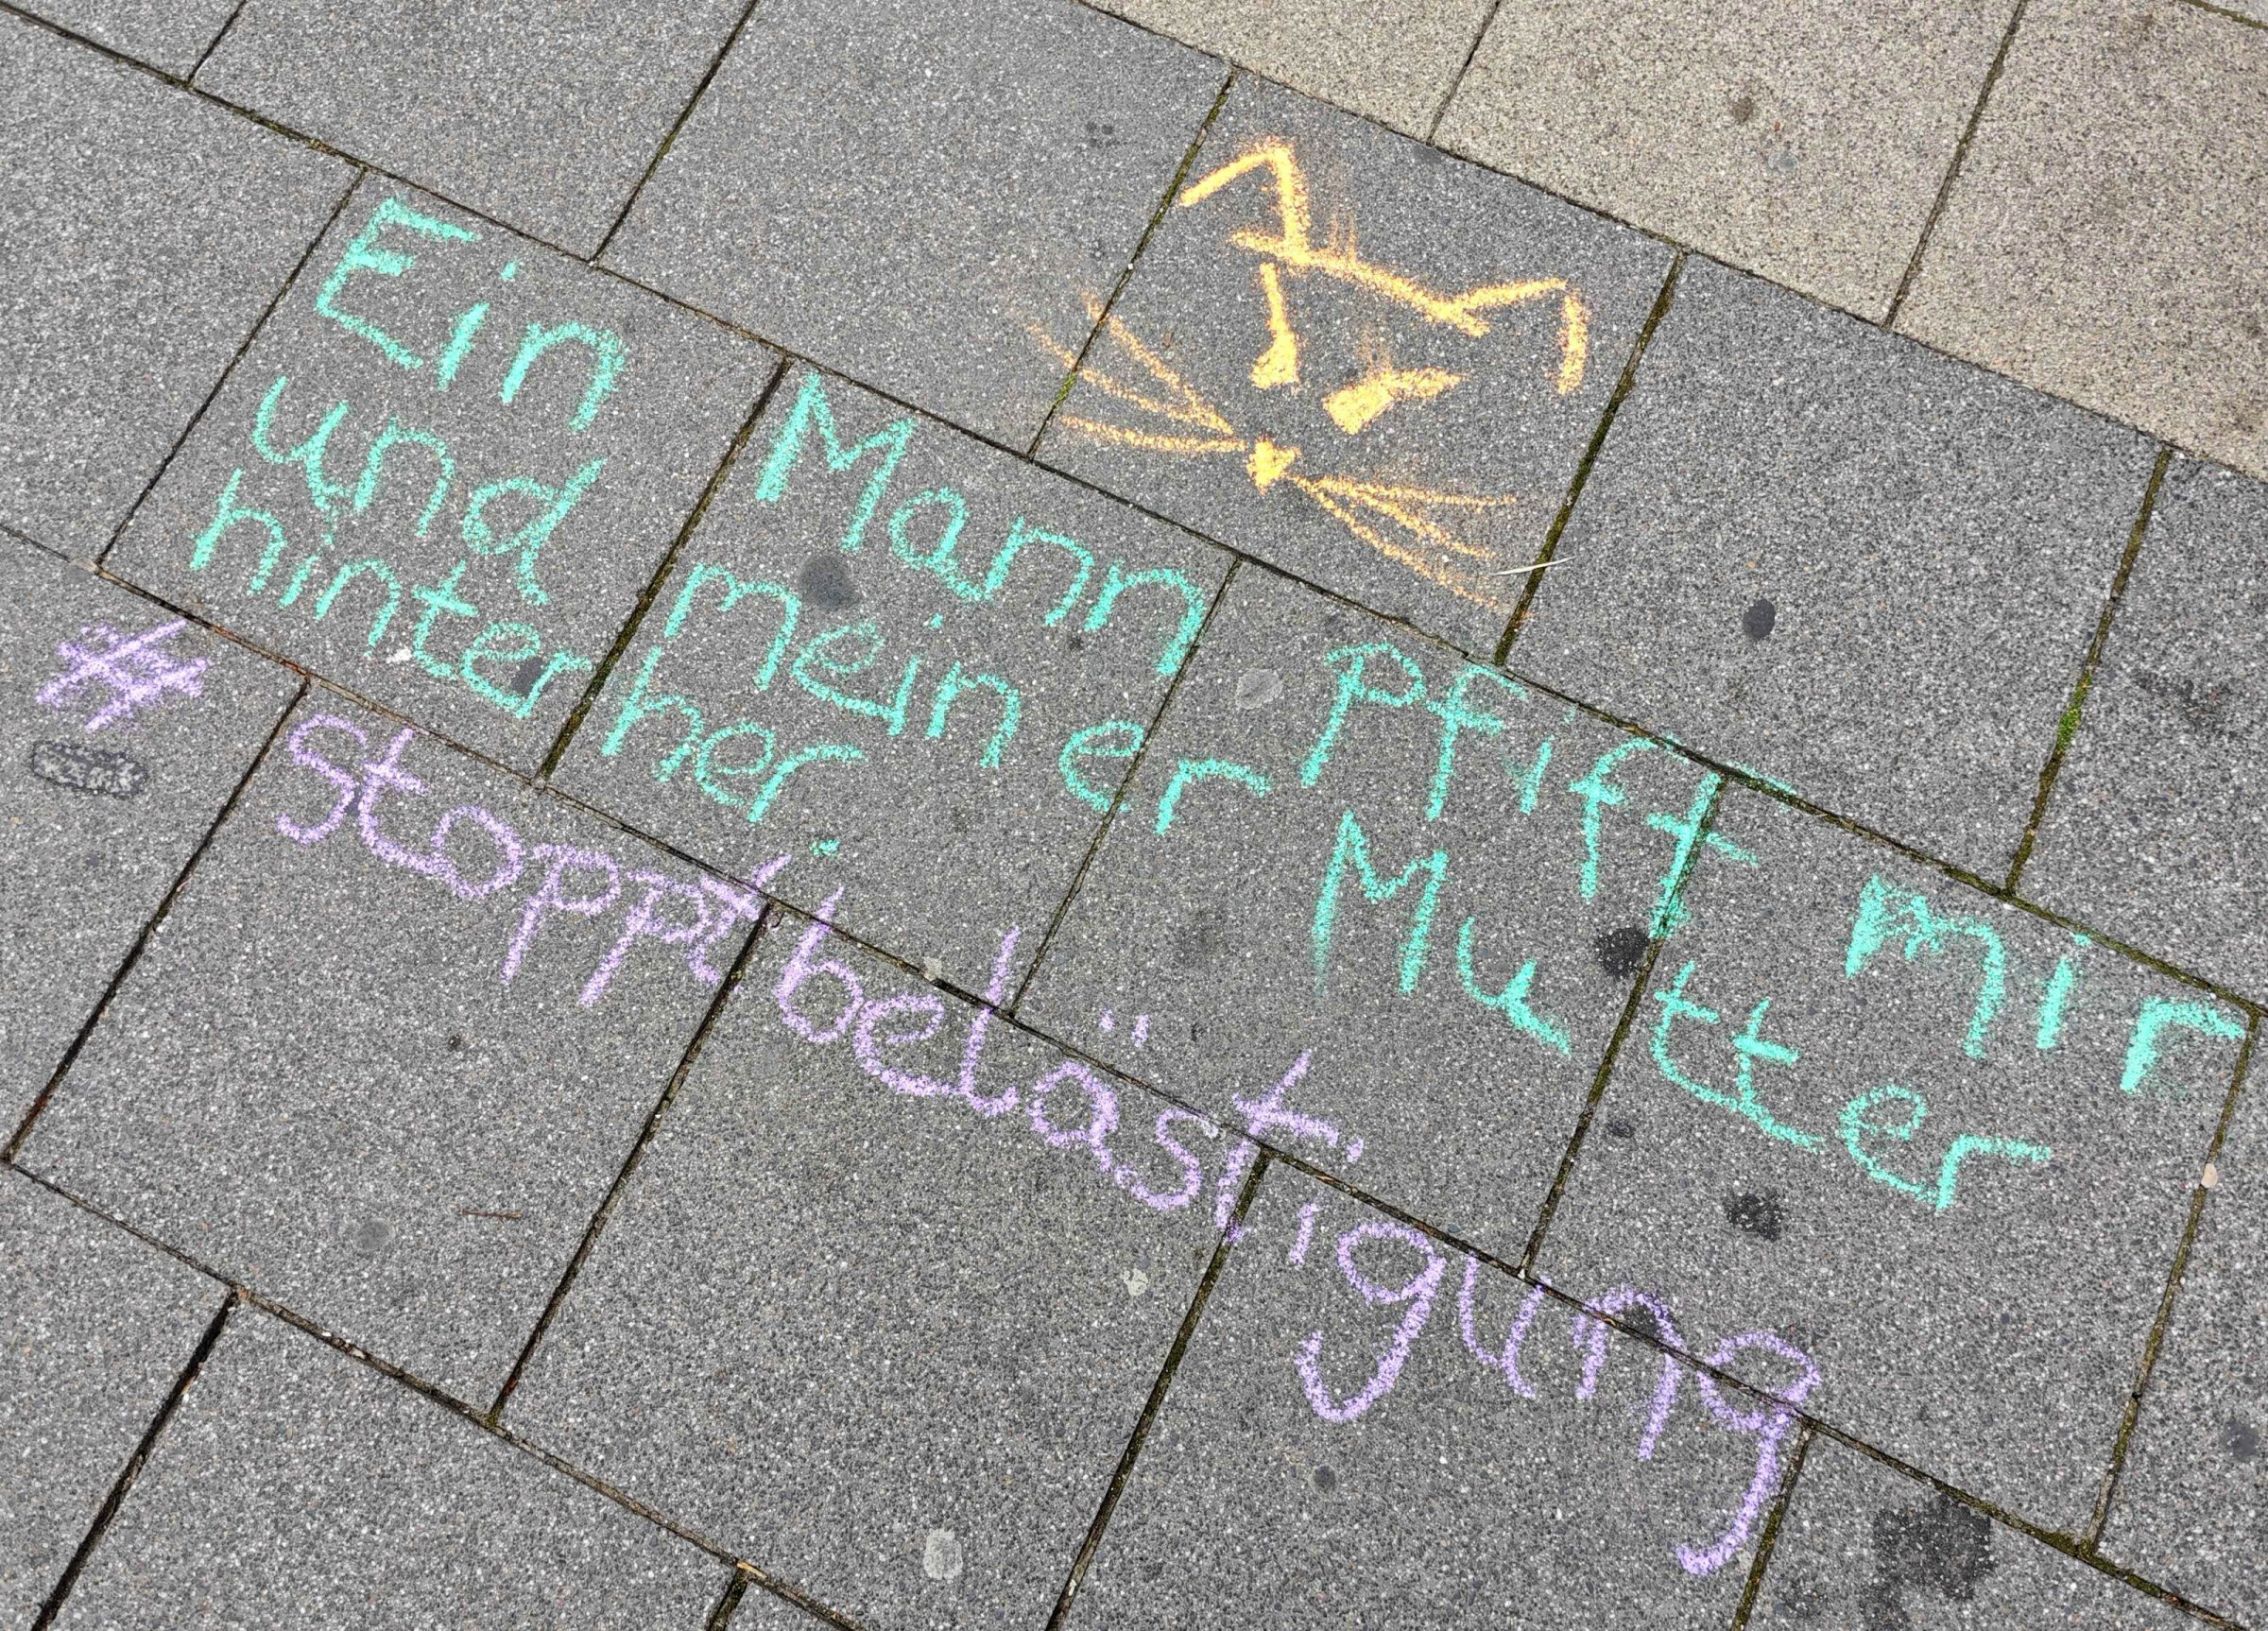 Ein Mann Pfift mir
und meiner Mutter
hinterher.
#stopptbelästigung